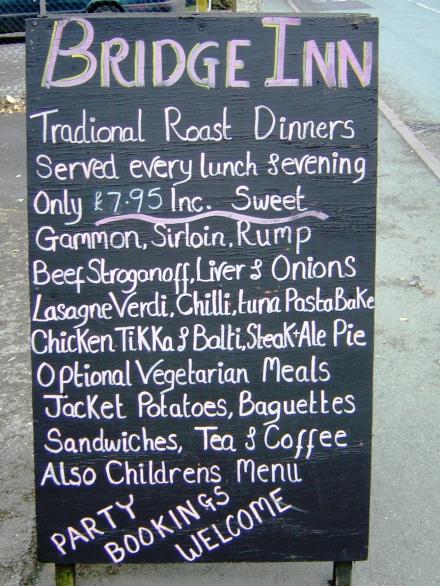 BRIDGE INN
Tradional Roast Dinners
Served every lunch & evening
Only £7.95 Inc. Sweet
Gammon, Sirloin, Rump
Beef Stroganoff, Liver & Onions
Lasagne Verdi, Chilli, tuna Pasta Bake
Chicken Tikka & Balti, Steak+Ale Pie
Optional Vegetarian Meals
Jacket Potatoes, Baguettes
Sandwiches, Tea & Coffee
Also Childrens Menu
PARTY
BOOKINGS
WELCOME